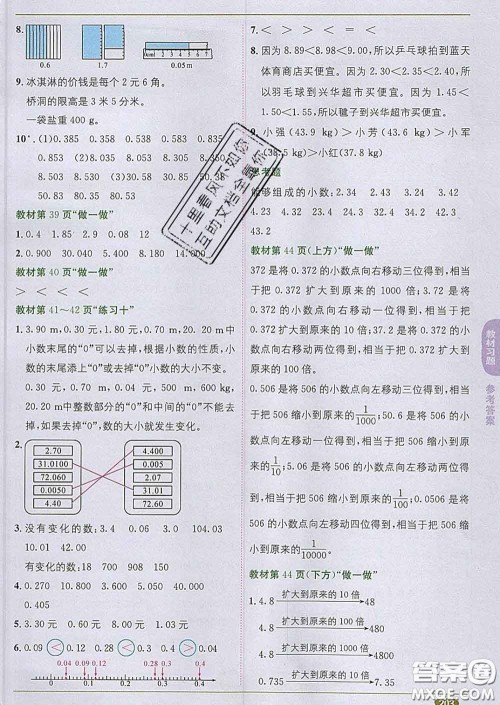 8.
0.6
1.7
0.05 m
9. 冰淇淋的价钱是每个 2 元 6 角。
桥洞的限高是 3 米 5 分米。
一袋盐重 400 g。
10* (1)0.385 0.358 0.538 0.583
0.835 0.853 (2)30.58 30.85
50.83 50.38 80.35 80.53
教材第 39 页“做一做”
1. 0.4 1.85 2.9 0.08 12
2. 0.900 30.040 5.400 8.180 14.000
教材第 40 页“做一做”
> < < < <
教材第 41~42 页“练习十”
1. 3.90 m, 0.30 元, 1.80 元, 0.70 m, 20.20 m中
小数末尾的“0”可以去掉,根据小数的性质,小
数的末尾添上“0”或去掉“0”,小数的大小不变。
0.30 元, 0.70 m, 0.04 元, 500 m, 600 kg,
20.20 m中整数部分的“0”和中间的“0”不能去
掉,如果去掉“0”,数的大小就发生变化。
2.
2.70 4.400
31.0100 0.005
72.060 2.7
0.0050 72.06
4.40 31.01
3. 没有变化的数:3.4 0.06 104.03
10.01 42.00
有变化的数:18 700 908 150
4. 0.270 40.080 4.000 14.440
0.405
5. 3.30 元 0.60 元 8.00 元 1.03 元
6. 0.09 < 0.12 0.4 > 0.31 0.28 < 0.29
0.04 0.12 0.28 0.31 0.4
0 0.1 0.2 0.3 0.4
7. > > < = <
8. 因为 8.89<8.98<9.00,所以乒乓球拍到蓝天
体育商店买便宜。因为 2.30<2.35<2.50,所
以羽毛球到兴华超市买便宜。因为 1.45<
1.50<1.80,所以毽子到兴华超市买便宜。
9. 小强(43.9 kg)>小芳(43.6 kg)>小军
(38.5 kg)>小红(37.8 kg)
思考题
能够组成的小数:2.34 2.43 3.24
3.42 4.23 4.32
教材第 44 页(上方)“做一做”
0.372 是将 372 的小数点向左移动三位得到,相
当于把 0.372 扩大到原来的 1000 倍;3.72 是将
0.372 的小数点向右移动一位得到,相当于把
0.372 扩大到原来的 10 倍;37.2 是将 0.372 的小
数点向右移动两位得到,相当于把 0.372 扩大到
原来的 100 倍。
0.506 是将 506 的小数点向左移动三位得到,相
当于把 506 缩小到原来的 1/1000;50.6 是将 506 的
小数点向左移动一位得到,相当于把 506 缩小到
原来的 1/10;5.06 是将 506 的小数点向左移动两
位得到,相当于把 506 缩小到原来的 1/100;0.0506
是将 506 的小数点向左移动四位得到,相当于把
506 缩小到原来的 1/10000。
教材第 44 页(下方)“做一做”
1. 4.8 扩大到原来的 10 倍 48
4.8 扩大到原来的 100 倍 480
0.735 扩大到原来的 10 倍 7.35
教材习题
参考答案
十里春风不如你
互助文档全靠你
答案圈
MXQE.COM
203